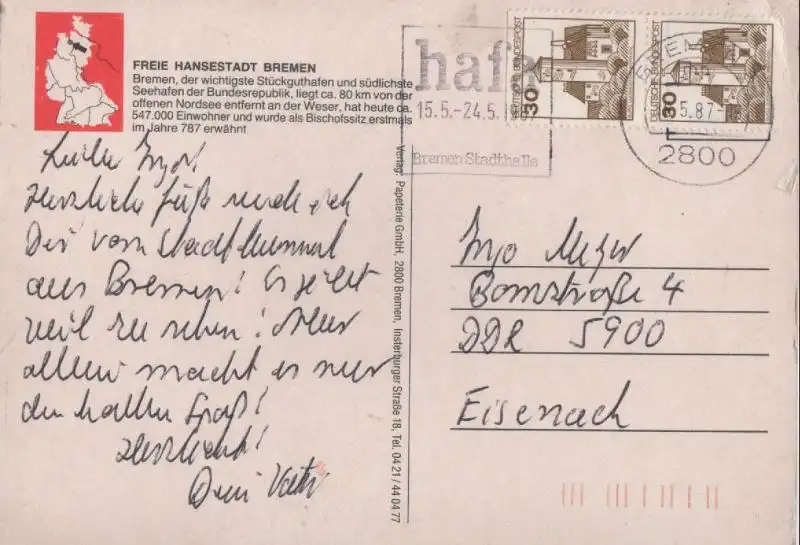 FREIE HANSESTADT BREMEN
Bremen, der wichtigste Stückguthafen und südlichste
Seehafen der Bundesrepublik, liegt ca. 80 km von der
offenen Nordsee entfernt an der Weser, hat heute ca.
547.000 Einwohner und wurde als Bischofssitz erstmals
im Jahre 787 erwähnt
haf
15.5.-24.5.
Bremen Stadthalle
DEUTSCHE BUNDESPOST
30
DEUTSCHE BUNDESPOST
30
5.87-
2800
Herzliche Grüße
Dir vom
aus Bremen! Es gibt
viel zu sehen! Aber
allein macht es nur
den halben Spaß!
Herzlichst!
Dein Vater
Verlag: Papeterie GmbH, 2800 Bremen, Insterburger Straße 18, Tel. 04 21 / 44 04 77
Ingo Meyer
Bornstraße 4
DDR 5900
Eisenach